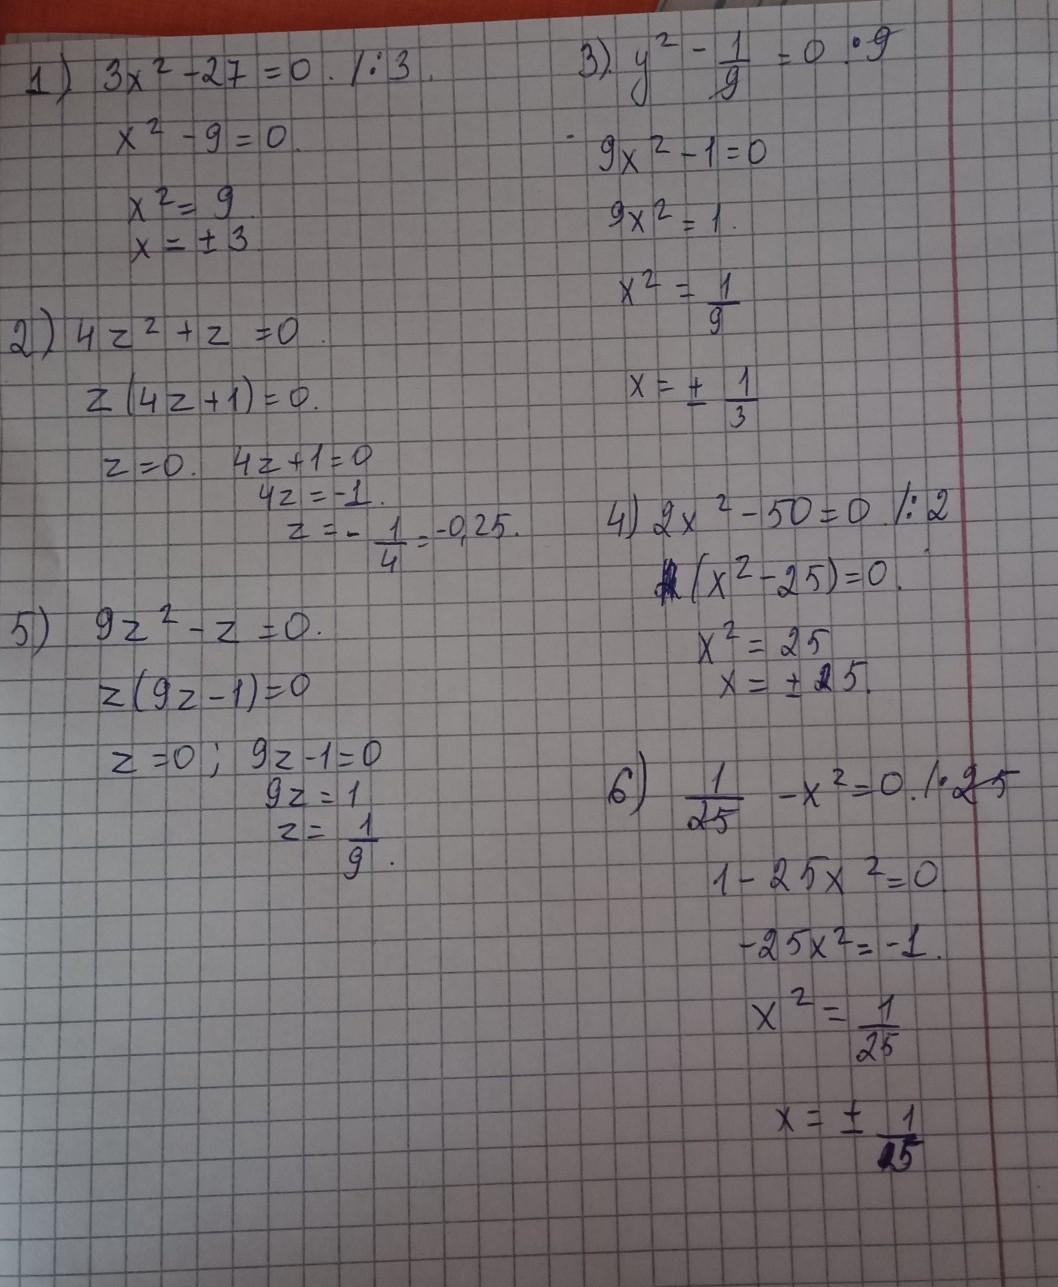 1) 3x² - 27 = 0. /:3.
x² - 9 = 0.
x² = 9
x = ± 3
2) 4z² + z = 0.
z(4z+1) = 0.
z = 0. 4z+1 = 0
4z = -1.
z = - 1/4 = -0,25.
5) 9z² - z = 0.
z(9z-1) = 0
z = 0; 9z-1 = 0
9z = 1
z = 1/9.
3) y² - 1/9 = 0 :9
9x² - 1 = 0
9x² = 1.
x² = 1/9
x = ± 1/3
4) 2x² - 50 = 0 /:2
(x² - 25) = 0.
x² = 25
x = ± 5.
6) 1/25 - x² = 0. /:25
1 - 25x² = 0
-25x² = -1.
x² = 1/25
x = ± 1/5